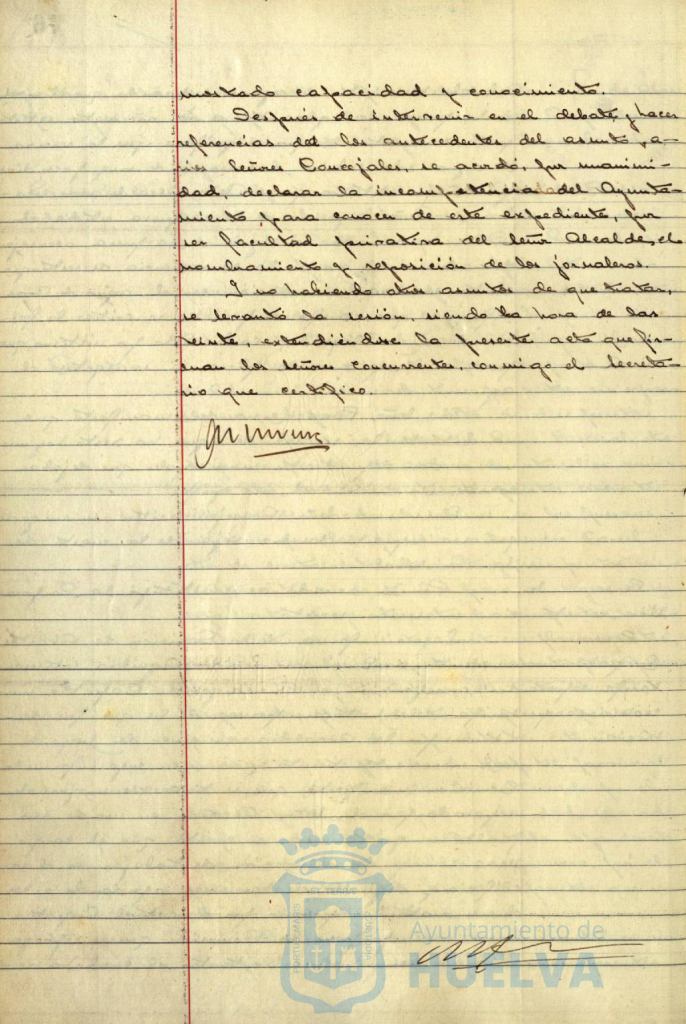 mostrado capacidad y conocimiento.
Después de intervenir en el debate, y hacer
referencias de los antecedentes del asunto, va-
rios Señores Concejales, se acordó, por unanimi-
dad, declarar la incompetencia del Ayunta-
miento para conocer de este expediente, por
ser facultad privativa del Señor Alcalde, el
nombramiento y reposición de los jornaleros.
Y no habiendo otros asuntos de que tratar,
se levantó la sesión, siendo la hora de las
veinte, extendiéndose la presente acta que fir-
man los Señores concurrentes, conmigo el Secreta-
rio que certifico.
Ayuntamiento de
HUELVA